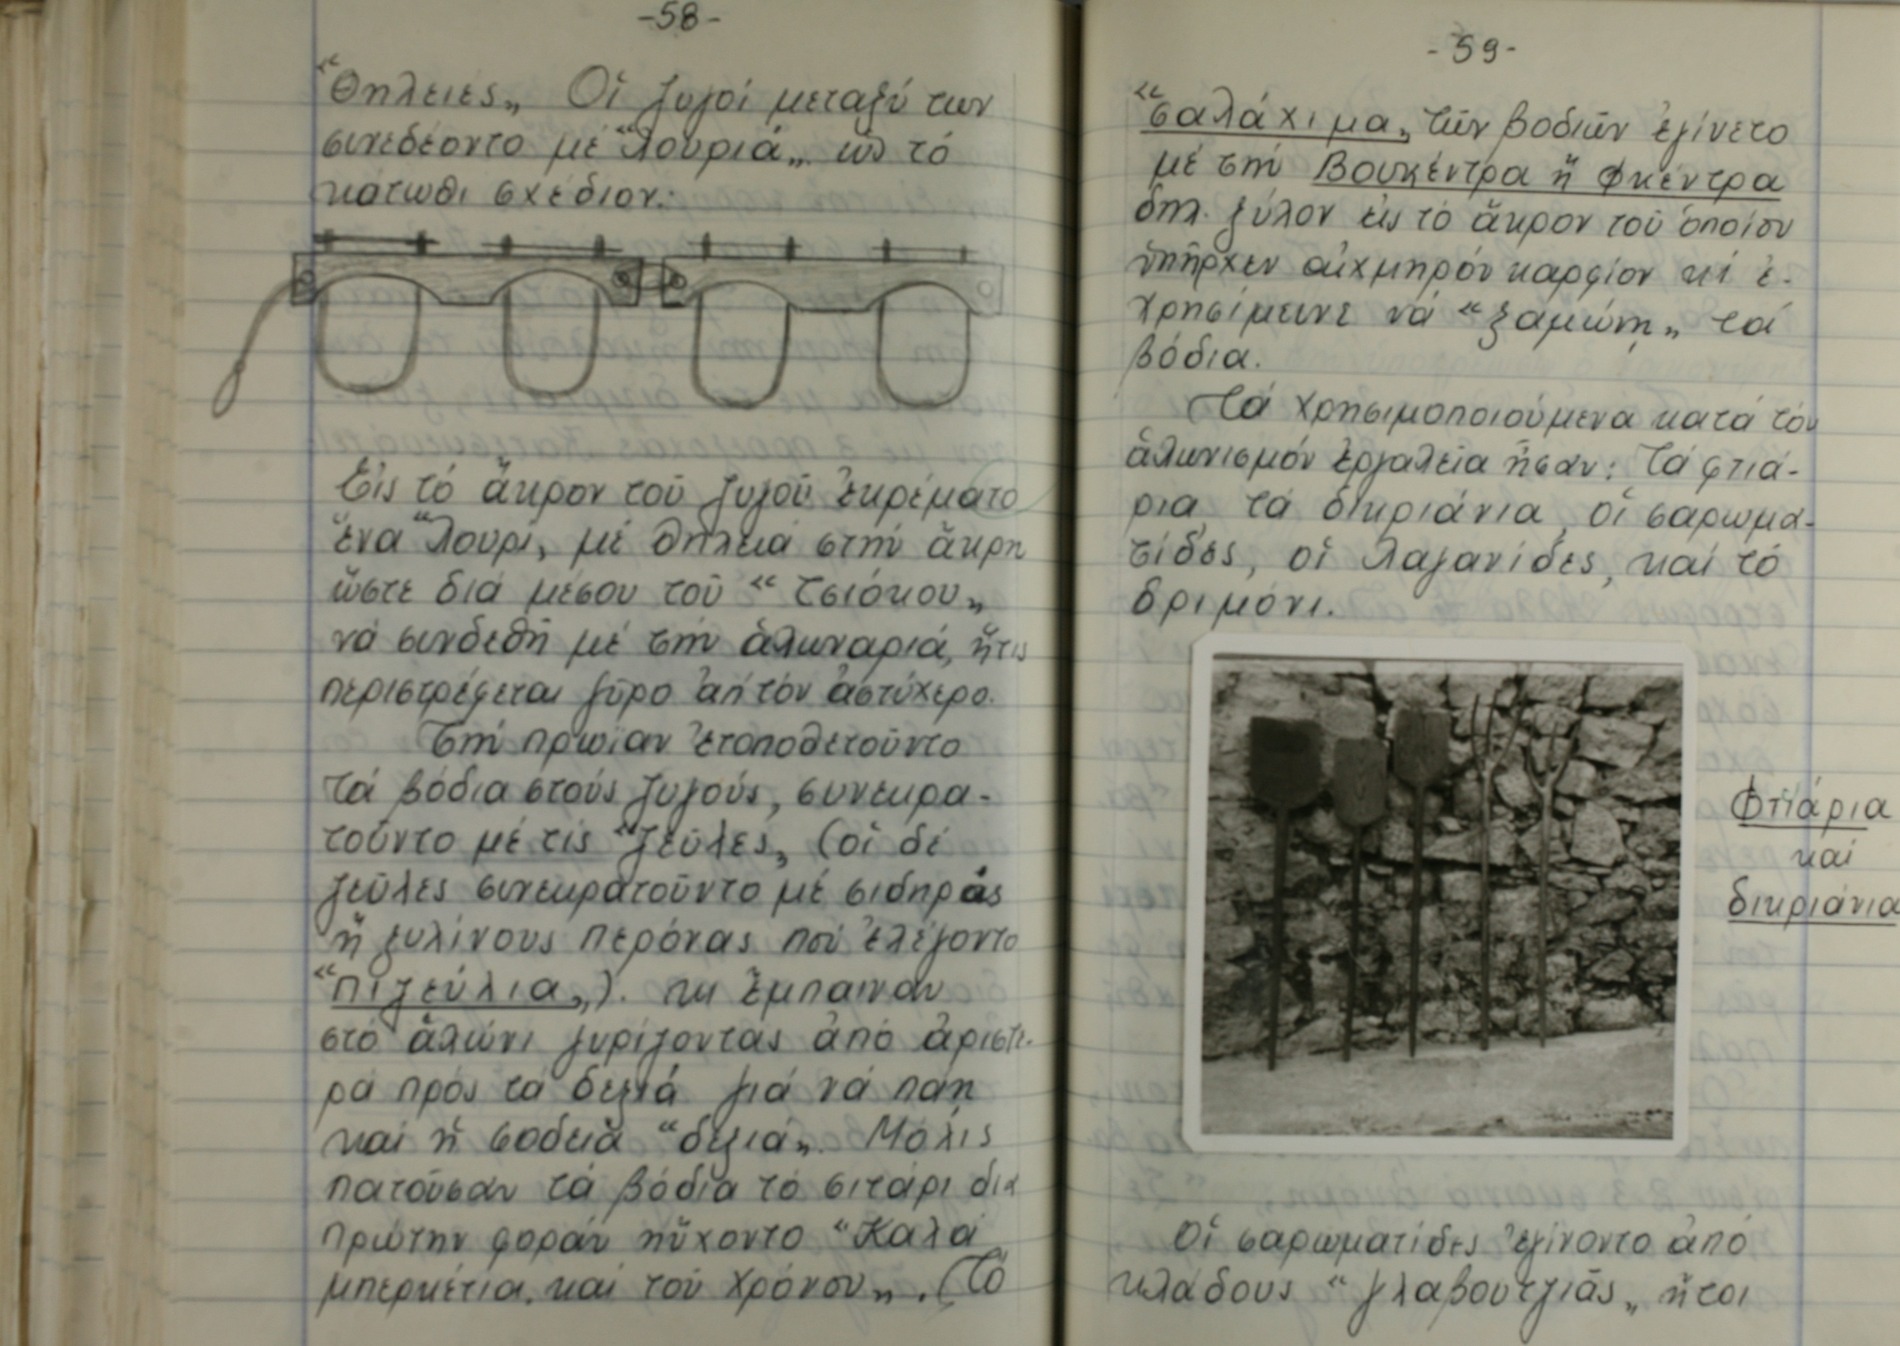 -58-
"Θηλειές„ Οἱ ζυγοί μεταξύ των
συνεδέοντο μέ "λουριά„ ὡς τό
κάτωθι σχέδιον:
Εἰς τό ἄκρον τοῦ ζυγοῦ ἐκρέματο
ἕνα "λουρί„ μέ θηλειά στήν ἄκρη
ὥστε διά μέσου τοῦ "τσιόκου„
νά συνδεθῆ μέ τήν ἁλωναριά, ἥτις
περιστρέφεται γύρο ἀπ' τόν ἀστύχερο.
Τήν πρωίαν ἐτοποθετοῦντο
τά βόδια στούς ζυγούς, συνεκρα-
τοῦντο μέ τίς "ζεῦλες„ (οἱ δέ
ζεῦλες συνεκρατοῦντο μέ σιδηράς
ἤ ξυλίνους περόνας πού ἐλέγοντο
"πιζεύλια„). κι ἔμπαιναν
στό ἁλώνι γυρίζοντας ἀπό ἀριστε-
ρά πρός τά δεξιά γιά νά πάη
καί ἡ σοδειά "δεξιά„. Μόλις
πατοῦσαν τά βόδια τό σιτάρι διά
πρώτην φοράν ηὔχοντο "Καλά
μπερκέτια. καί τοῦ χρόνου„. (Τό
-59-
"σαλάχιμα„ τῶν βοδιῶν ἐγίνετο
μέ τήν Βουκέντρα ἤ Φκέντρα
δηλ. ξύλον εἰς τό ἄκρον τοῦ ὁποίου
ὑπῆρχεν αἰχμηρόν καρφίον κί ἐ-
χρησίμευνε νά "ξαμώνη„ τά
βόδια.
Τά χρησιμοποιούμενα κατά τόν
ἁλωνισμόν ἐργαλεῖα ἦσαν: Τά φτιά-
ρια τά δικριάνια, οἱ σαρωμα-
τίδες, οἱ λαγανίδες, καί τό
δριμόνι.
Φτιάρια
καί
δικριάνια
Οἱ σαρωματίδες ἐγίνοντο ἀπό
κλάδους "γλαβουτζιᾶς„ ἤτοι